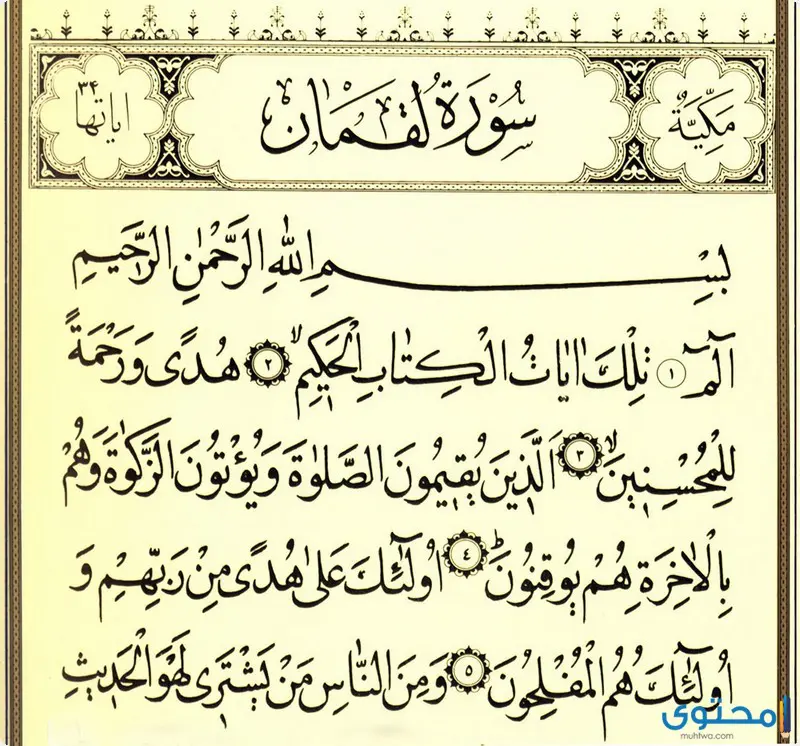 مَكِّيَّةٌ
سُورَةُ لُقْمَان
اياتها ٣٤
بِسْمِ اللّٰهِ الرَّحْمٰنِ الرَّحٖيمِ
الٓمٓ ١ تِلْكَ اٰيَاتُ الْكِتَابِ الْحَكٖيمِۙ ٢ هُدًى وَرَحْمَةً
لِلْمُحْسِنٖينَۙ ٣ اَلَّذٖينَ يُقٖيمُونَ الصَّلٰوةَ وَيُؤْتُونَ الزَّكٰوةَ وَهُمْ
بِالْاٰخِرَةِ هُمْ يُوقِنُونَؕ ٤ اُولٰٓئِكَ عَلٰى هُدًى مِنْ رَبِّهِمْ وَ
اُولٰٓئِكَ هُمُ الْمُفْلِحُونَ ٥ وَمِنَ النَّاسِ مَنْ يَشْتَرٖى لَهْوَ الْحَدٖيثِ
محتوى
muhtwa.com